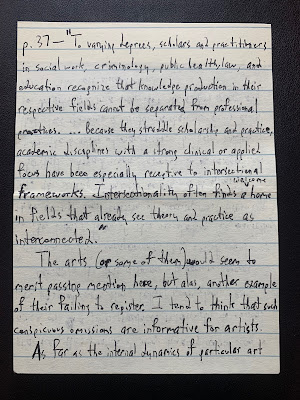 p. 37 — "To varying degrees, scholars and practitioners
in social work, criminology, public health, law, and
education recognize that knowledge production in their
respective fields cannot be separated from professional
practices. ... Because they straddle scholarship and practice,
academic disciplines with a strong clinical or applied
focus have been especially receptive to intersectional
frameworks. Intersectionality often finds a welcome home
in fields that already see theory and practice as
interconnected."
The arts (or some of them) would seem to
merit passing mention here, but alas, another example
of their failing to register. I tend to think that such
conspicuous omissions are informative for artists.
As far as the internal dynamics of particular art